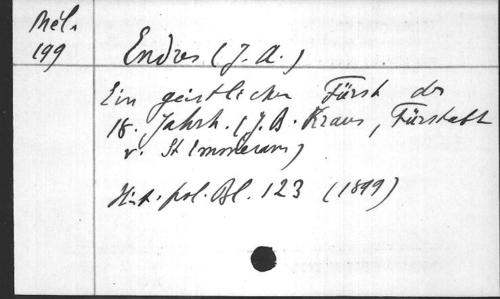 Mél.
199
Endres (J. A.)
Ein geistlicher Fürst des
18. Jahrh. (J. B. Kraus, Fürstabt
v. St Emmeram)
Hist. pol. Bl. 123 (1899)